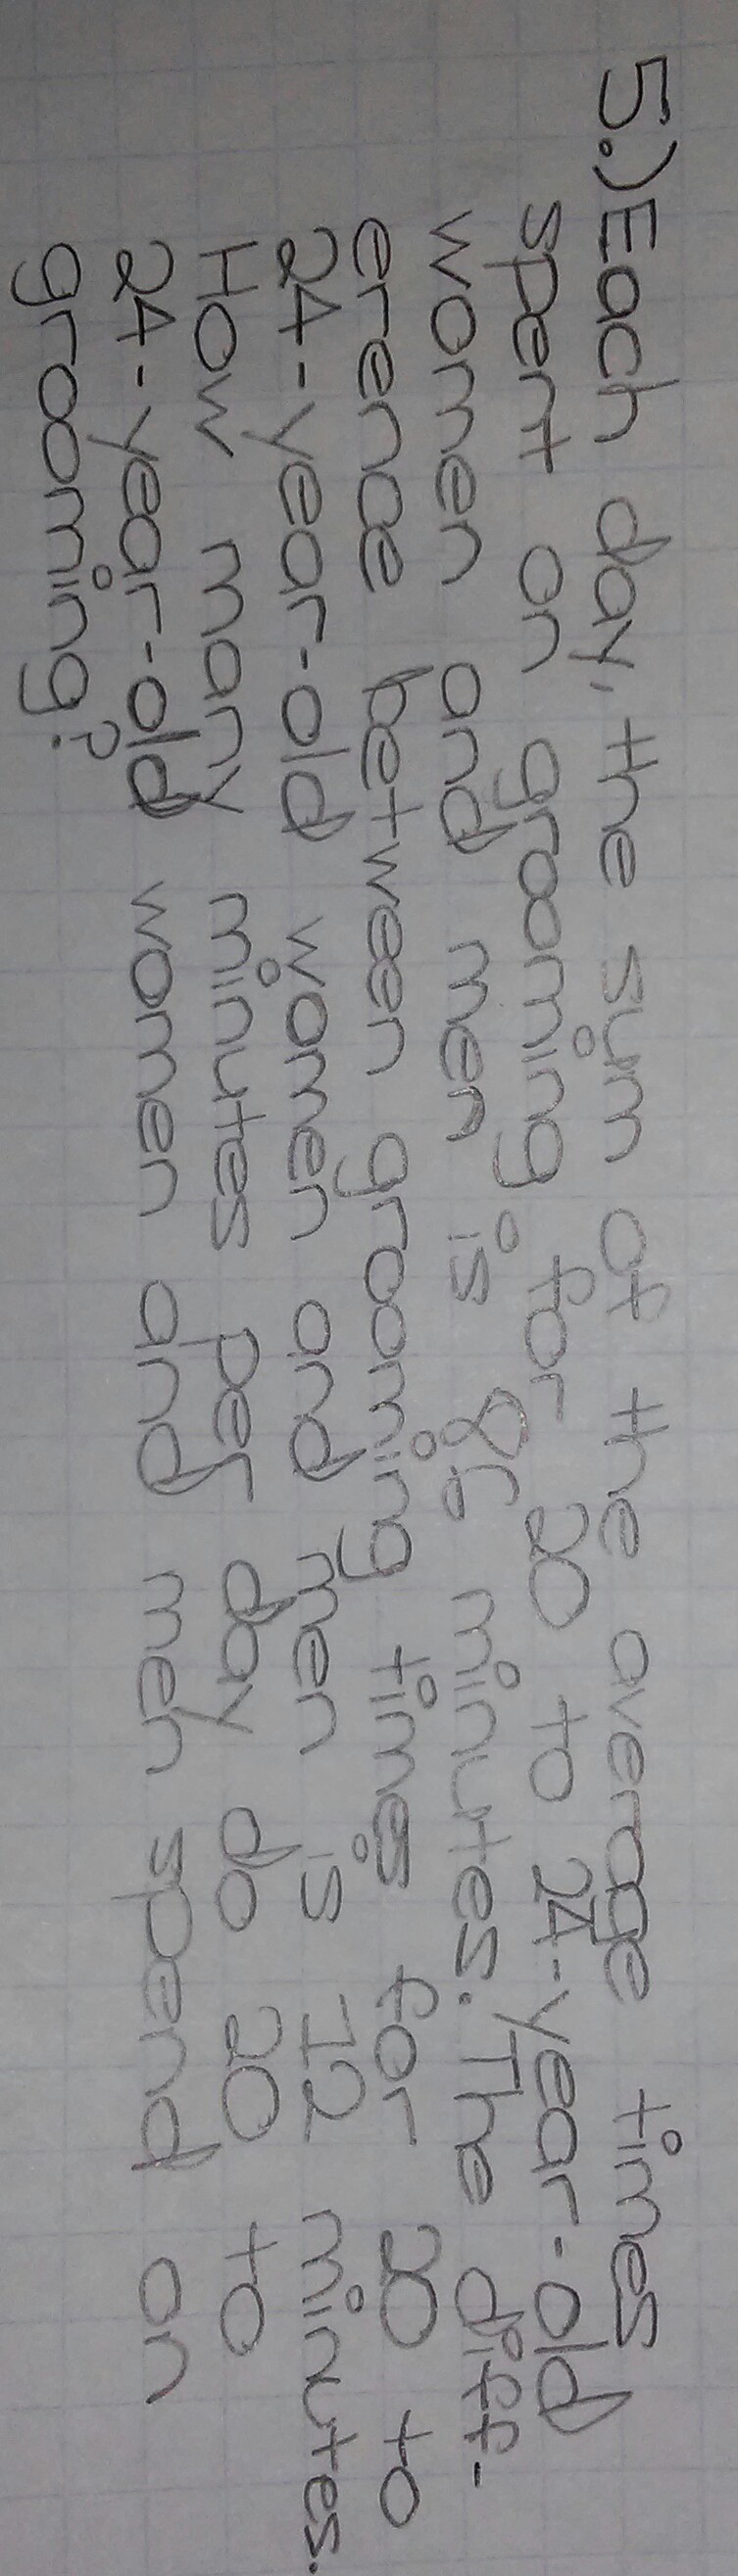 5.) Each day, the sum of the average times
spent on grooming for 20 to 24-year-old
women and men is 86 minutes. The diff-
erence between grooming times for 20 to
24-year-old women and men is 12 minutes.
How many minutes per day do 20 to
24-year-old women and men spend on
grooming?